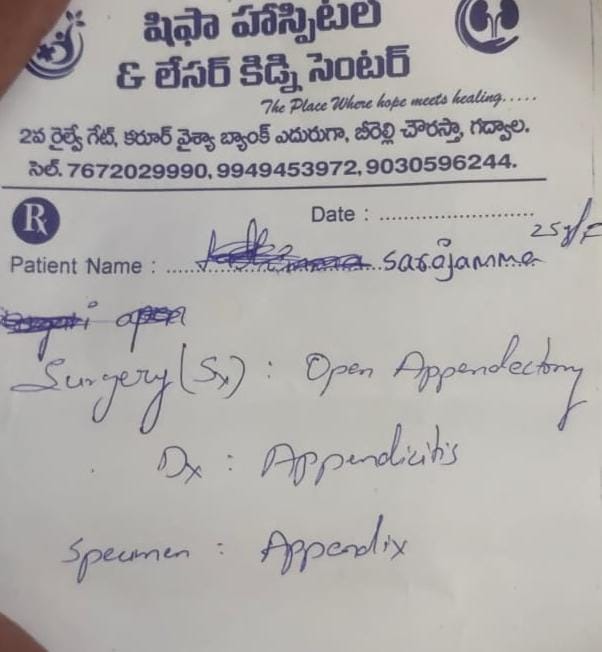 షిఫా హాస్పిటల్
& లేసర్ కిడ్ని సెంటర్
The Place Where hope meets healing.....
2వ రైల్వే గేట్, కరూర్ వైశ్యా బ్యాంక్ ఎదురుగా, బీరెల్లి చౌరస్తా, గద్వాల.
సెల్. 7672029990, 9949453972, 9030596244.
Rx
Date : ............................
25y/F
Patient Name : ..... Sarojamma
open
Surgery (Sx) : Open Appendectomy
Dx : Appendicitis
Specimen : Appendix